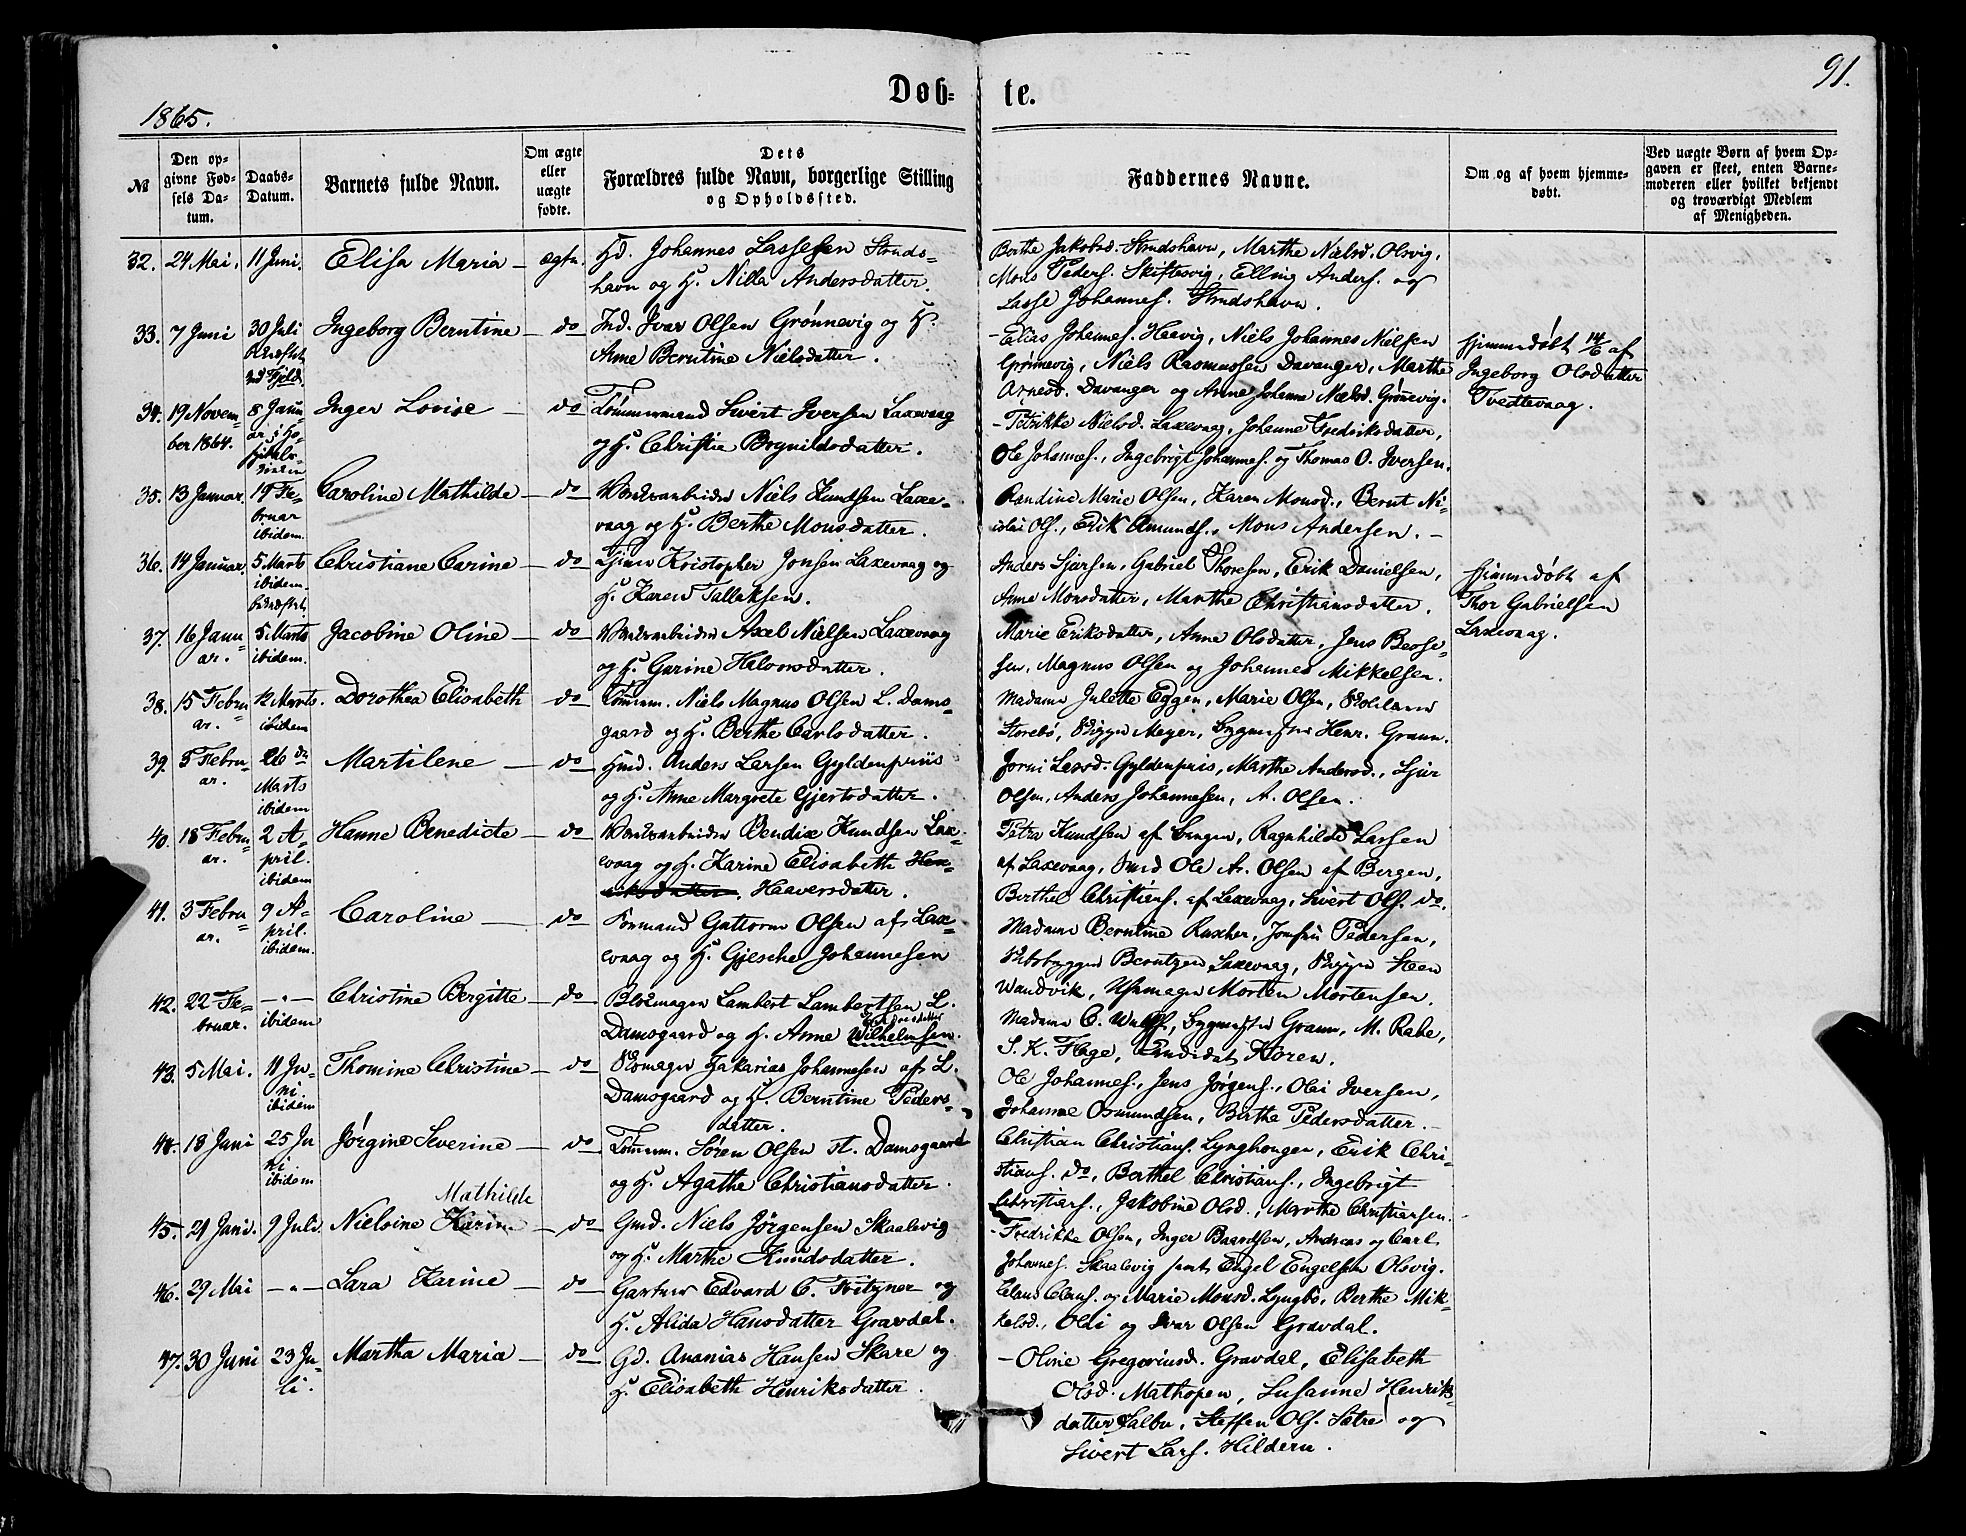 91.
Døb- te.
1865.
№
Den op-
givne Fød-
sels Da-
tum.
Daabs-
Datum.
Barnets fulde Navn.
Om ægte
eller
uægte
fødte.
Dets
Forældres fulde Navn, borgerlige Stilling
og Opholdssted.
Faddernes Navne.
Om og af hvem hjemme-
døbt.
Ved uægte Børn af hvem Op-
gaven er skeet, enten Barne-
moderen eller hvilket bekjendt
og troværdigt Medlem
af Menigheden.
32. 24 Mai. 11 Juni. Elisa Maria — ægte.
Hd. Johannes Lassesen Struds-
havn og H. Nilla Andersdatter.
Berthe Jakobsd. Strudshavn, Marthe Nielsd. Olsvig,
Mons Peders. Skiftesvig, Elling Anders. og
Lasse Johannes. Strudshavn.
33. 7 Juni
30 Juli
ved Fjeld.
Ingeborg Berntine — do
Ind. Ivar Olsen Grønnevig og H.
Anne Berntine Nielsdatter.
- Elias Johannes. Heevig, Niels Johannes Nielsen
Grønnevig, Niels Rasmussen Davanger, Marthe
Arnesd. Davanger og Anne Johanne Nielsd. Grønevig.
Hjemmedøbt 14/6 af
Ingeborg Olsdatter
Tvedtevaag.
34. 19 Novem-
ber 1864.
8 Janu-
ar i
Inger Lovise — do
Tømmermand Sivert Iversen Laxevaag
og H. Christie Brynildsdatter.
- Petrikke Nielsd. Laxevaag, Johanne Fredriksdatter,
Ole Johannes., Ingebrigt Johannes. og Thomas O. Iversen.
35. 13 Januar.
19 Fe-
bruar
ibidem.
Caroline Mathilde — do
Værksarbeider Niels Knudsen Laxe-
vaag og H. Berthe Monsdatter.
Randine Marie Olsen, Karen Monsd., Bernt Ni-
colai Ols., Erik Amunds., Mons Andersen. —
36. 14 Januar.
5 Marts
ibidem
bekræftet.
Christiane Carine — do
Kristopher Jonsen Laxevaag og
H. Karen Tallaksen.
Anders Sjursen, Gabriel Thoresen, Erik Danielsen,
Anne Monsdatter, Marthe Christiansdatter.
Hjemmedøbt af
Thor Gabrielsen
Laxevaag.
37. 16 Janu-
ar.
5 Marts
ibidem.
Jacobine Oline — do
Værksarbeider Axel Nielsen Laxevaag
og H. Gurine Halvorsdatter.
Marie Eriksdatter, Anne Olsdatter, Jens
sen, Magnus Olsen og Johannes Mikkelsen.
38. 15 Febru-
ar.
12 Marts.
ibidem
Dorothea Elisabeth do
Tømrm. Niels Magnus Olsen L. Dams-
gaard og H. Berthe Carlsdatter.
Madame Julette Eggen, Marie Olsen,
Storebø, Meyer, Bygmester Henr. Grann.
39. 5 Febru-
ar.
26 de
Marts
ibidem
Martilene — do
Hmd. Anders Larsen Gyldenpriis
og H. Anne Margrete Gjertsdatter.
Larsd. Gyldenpris, Marthe Andersd., Sjur
Olsen, Anders Johannesen, A. Olsen.
40. 18 Febru-
ar.
2 A-
pril.
ibidem
Hanne Benedicte — do
Værksarbeider Bendix Knudsen Lax-
evaag og H. Karine Elisabeth Hen-
riksdatter. Haaversdatter.
Petra Knudsen af Bergen, Ragnhilde Larsen
af Laxevaag, Smed Ole A. Olsen af Bergen,
Berthel Christians. af Laxevaag, Sivert Ols. do.
41. 3 Febru-
ar.
9 A-
pril.
ibidem.
Caroline — do
Formand Guttorm Olsen af Lax-
evaag og H. Gjesche Johannesen
Madame Berntine Ruscher, Jomfru Pedersen,
Berntzen Laxevaag, Steen
Wandvik, Uhrmager Morten Mortensen.
42. 22 Fe-
bruar.
— „ —
ibidem
Christine Bergitte — do
Blokmager Lambert Lambertsen L.
Damsgaard og H. Anne Wilhelmsen.
Madame C. Wulff, Bygmester Grann, M. Rabe,
S. K. Flage, Candidat Koren.
43. 5 Mai.
11 Ju-
ni.
ibidem
Thomine Christine — do
Zakarias Johannesen af L.
Damsgaard og H. Berntine Peders-
datter.
Ole Johannes., Jens Jørgens., Oli Iversen,
Johanne Osmundsen, Berthe Pedersdatter. —
44. 18 Juni
25 Ju
ni.
ibidem
Jørgine Severine — do
Tømrm. Søren Olsen st. Damsgaard
og H. Agathe Christiansdatter.
Christian Christians. Lynghougen, Erik Chri-
stians. do, Berthel Christians., Ingebrigt
Christians., Jakobine Olsd., Marthe Christiansen.
Mathilde
45. 21 Juni. 9 Juli Nielsine Karine — do
Gmd. Niels Jørgensen Skaalevig
og H. Marthe Knudsdatter.
- Fredrikke Olsen, Inger Baardsen, Andreas og Carl
Johannes. Skaalevig samt Engel Engelsen Olsvig.
46. 29 Mai — „ — Lara Karine — do
Gartner Edvard C. Fritzner og
H. Alida Hansdatter Gravdal.
Claus Claus. og Marie Monsd. Lyngbø, Berthe Mik-
kelsd., Oldi og Ivar Olsen Gravdal.
47. 30 Juni
23 Ju-
li.
Martha Maria — do
Gd. Ananias Hansen Skare og
H. Elisabeth Henriksdatter.
- Oline Gregoriusd. Gravdal, Elisabeth
Olsd. Mathopen, Susanne Henriks-
datter Salbu, Steffen Ols. Sætre og
Sivert Lars. Hildern.